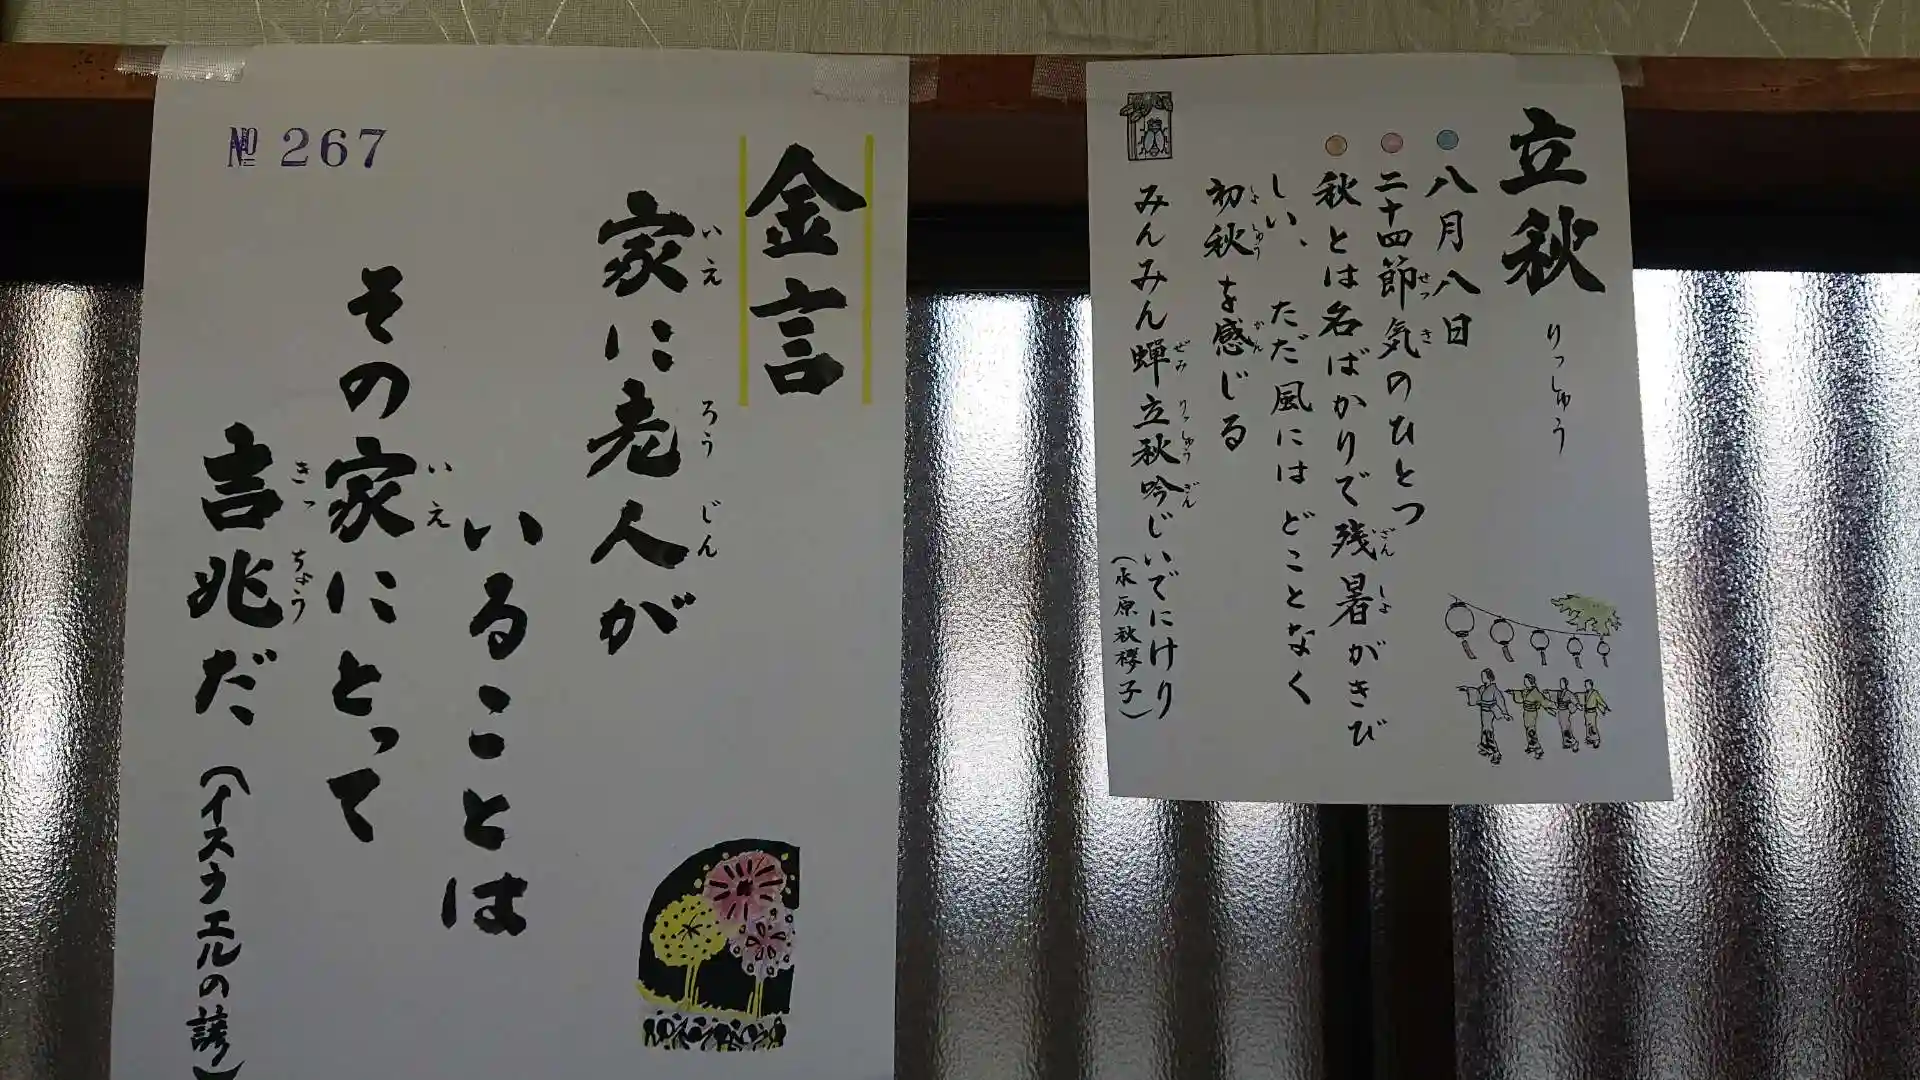 立秋 りっしゅう
八月八日
二十四節気のひとつ
秋とは名ばかりで残暑がきび
しい、ただ風にはどことなく
初秋を感じる
みんみん蝉立秋吟じいでにけり
(水原秋櫻子)
№ 267
金言
家に老人が
いることは
その家にとって
吉兆だ (イスラエルの諺)